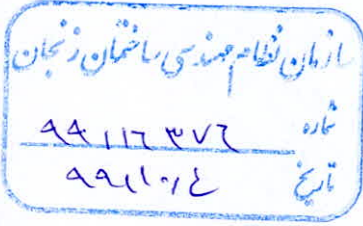 سازمان نظام مهندسی ساختمان زنجان
شماره ۹۹۱۱۶۳۷۶
تاریخ ۹۹/۱۰/۴